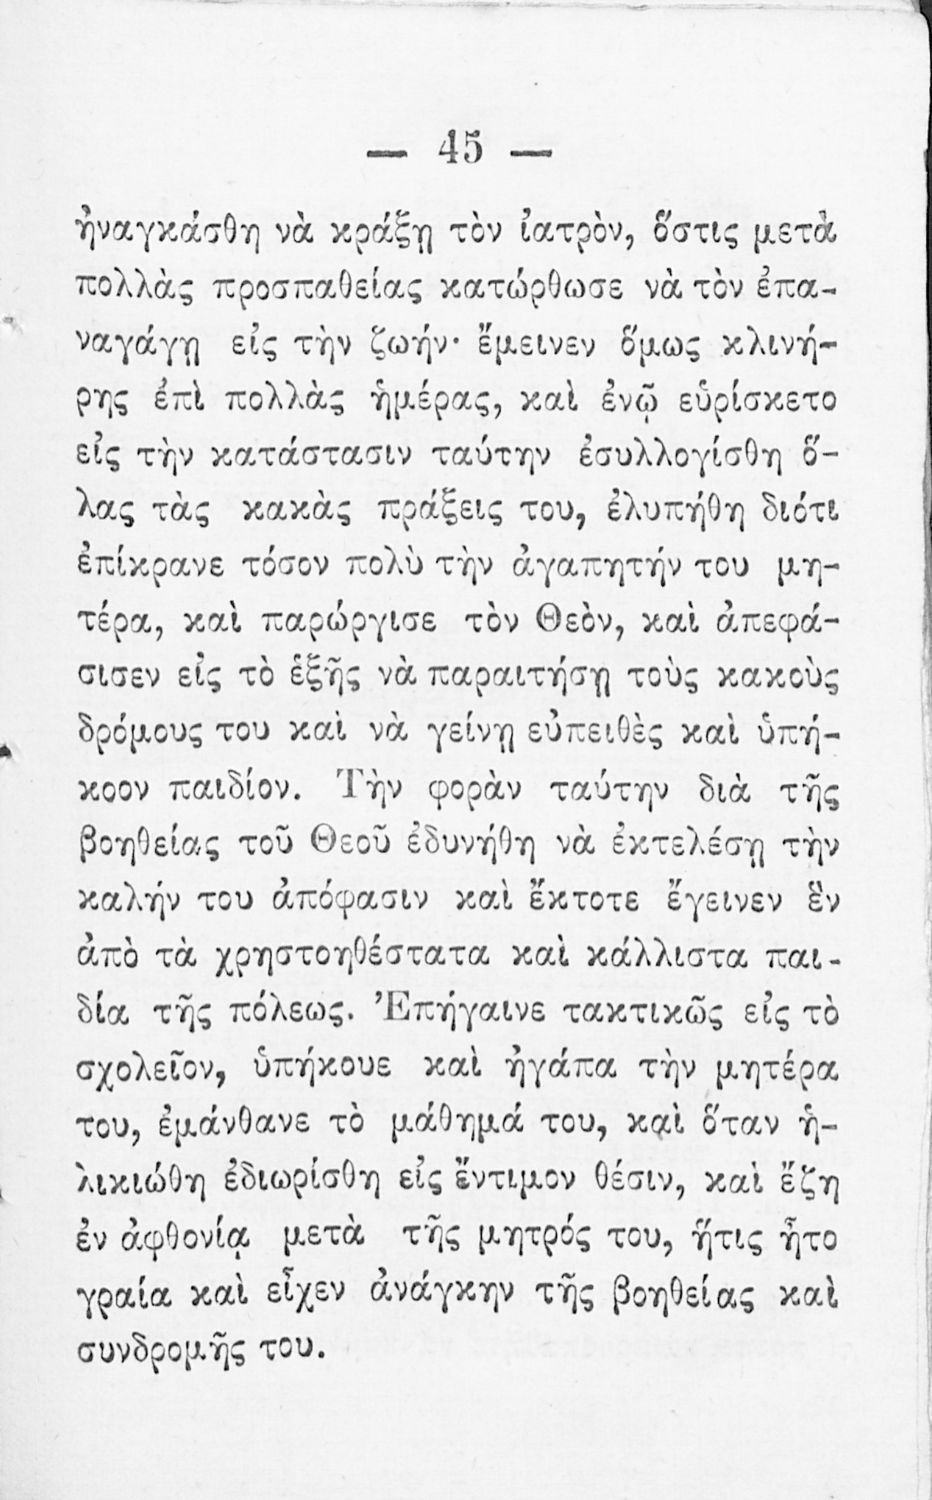 — 45 —
ἠναγκάσθη νὰ κράξῃ τὸν ἰατρὸν, ὅστις μετὰ
πολλὰς προσπαθείας κατώρθωσε νὰ τὸν ἐπα-
ναγάγῃ εἰς τὴν ζωήν· ἔμεινεν ὅμως κλινή-
ρης ἐπὶ πολλὰς ἡμέρας, καὶ ἐνῷ εὑρίσκετο
εἰς τὴν κατάστασιν ταύτην ἐσυλλογίσθη ὅ-
λας τὰς κακὰς πράξεις του, ἐλυπήθη διότι
ἐπίκρανε τόσον πολὺ τὴν ἀγαπητήν του μη-
τέρα, καὶ παρώργισε τὸν Θεὸν, καὶ ἀπεφά-
σισεν εἰς τὸ ἑξῆς νὰ παραιτήσῃ τοὺς κακοὺς
δρόμους του καὶ νὰ γείνῃ εὐπειθὲς καὶ ὑπή-
κοον παιδίον. Τὴν φορὰν ταύτην διὰ τῆς
βοηθείας τοῦ Θεοῦ ἐδυνήθη νὰ ἐκτελέσῃ τὴν
καλήν του ἀπόφασιν καὶ ἔκτοτε ἔγεινεν ἓν
ἀπὸ τὰ χρηστοηθέστατα καὶ κάλλιστα παι-
δία τῆς πόλεως. Ἐπήγαινε τακτικῶς εἰς τὸ
σχολεῖον, ὑπήκουε καὶ ἠγάπα τὴν μητέρα
του, ἐμάνθανε τὸ μάθημά του, καὶ ὅταν ἡ-
λικιώθη ἐδιωρίσθη εἰς ἔντιμον θέσιν, καὶ ἔζη
ἐν ἀφθονίᾳ μετὰ τῆς μητρός του, ἥτις ἦτο
γραία καὶ εἶχεν ἀνάγκην τῆς βοηθείας καὶ
συνδρομῆς του.